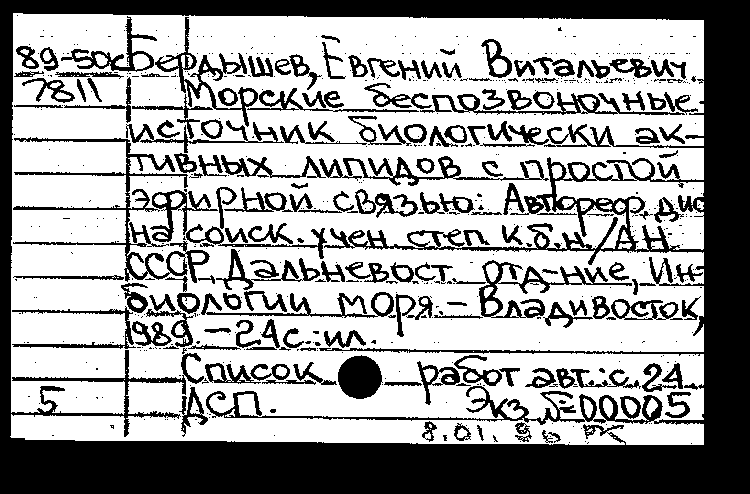 89-50к Бердышев, Евгений Витальевич.
7811 Морские беспозвоночные-
источник биологически ак-
тивных липидов с простой
эфирной связью: Автореф. дис
на соиск. учен степ. к.б.н. / АН
СССР, Дальневост. отд-ние, Ин-
биологии моря. - Владивосток,
1989. - 24с.: ил.
Список работ авт.: с. 24
5 ДСП. Экз. №00005
8.01.96